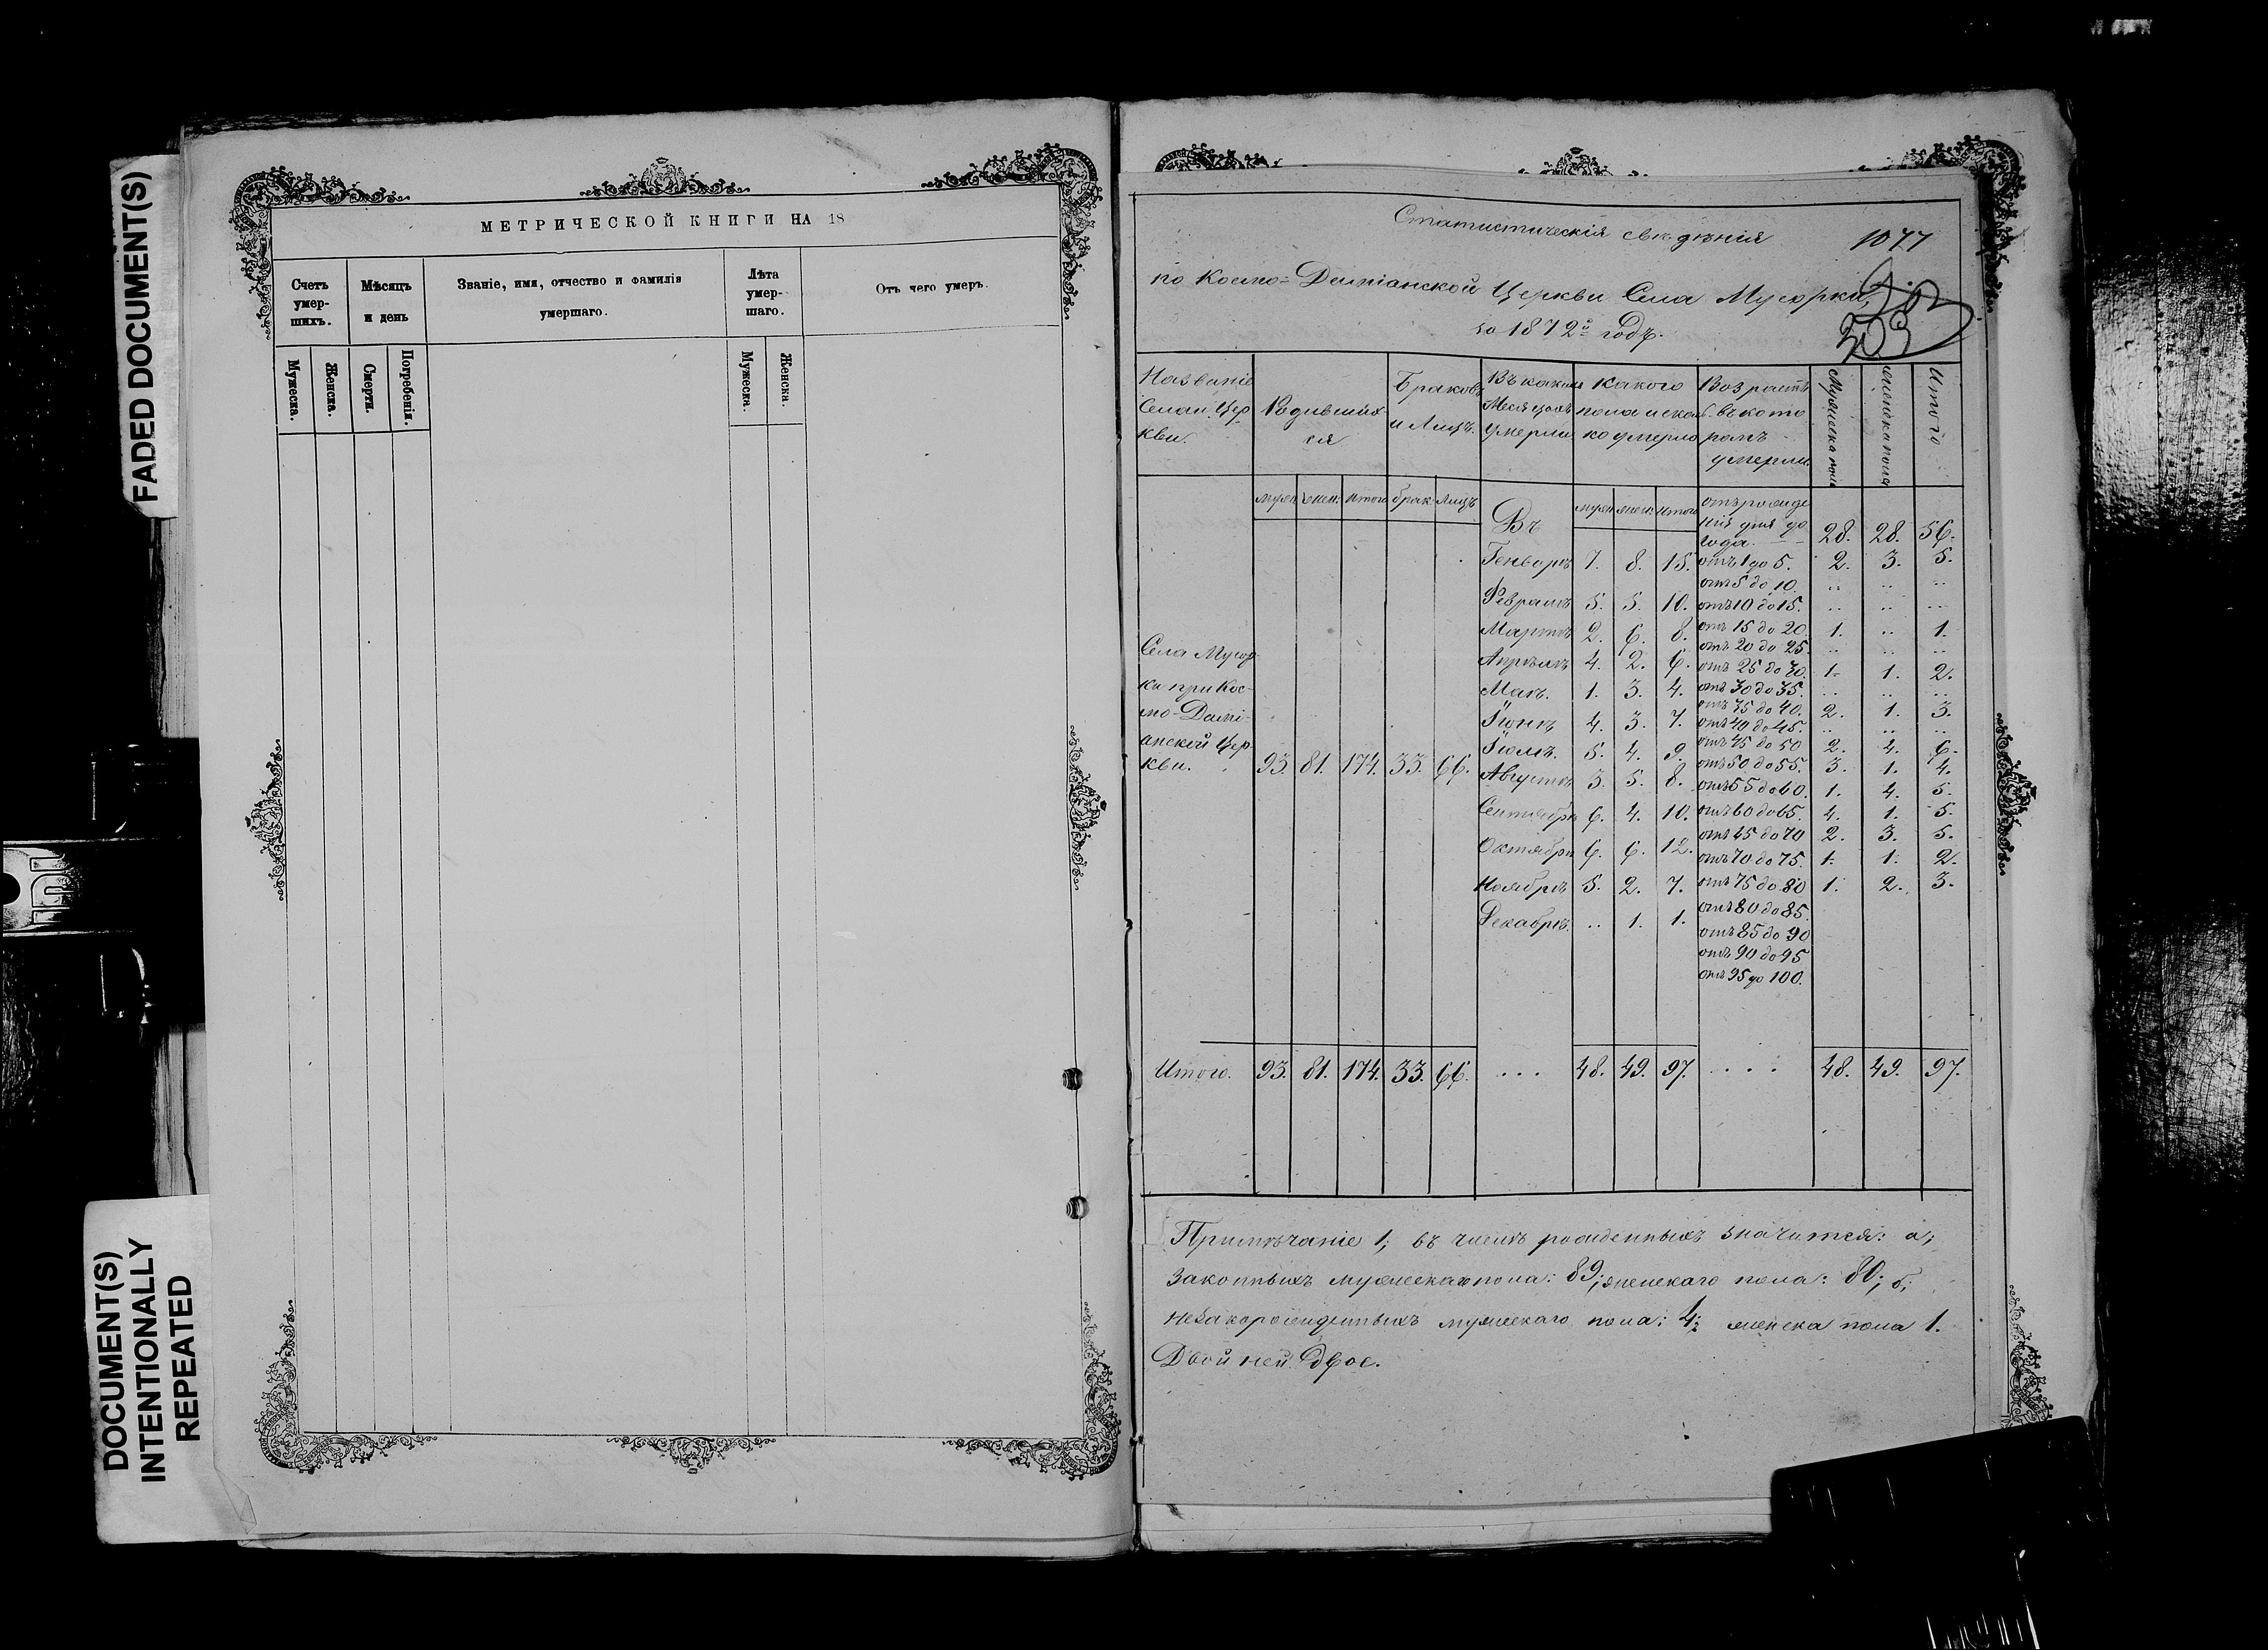 FADED DOCUMENT(S)
DOCUMENT(S)
INTENTIONALLY
REPEATED
МЕТРИЧЕСКОЙ КНИГИ НА 18
Счетъ умер-шихъ.
Мѣсяцъ и день
Званіе, имя, отчество и фамилія умершаго.
Лѣта умер-шаго.
Отъ чего умеръ.
Мужеска.
Женска.
Смерти.
Погребенія.
Мужеска.
Женска.
Статистическія свѣдѣнія
1077
по Космо-Даміанской Церкви Села Мусорки,
303
за 1872й годъ.
Названіе Села и Цер кви.
Родивших ся
Браковъ и Лицъ.
Въ какихъ Месяцахъ умерли
Какого пола и сколь ко умерло
Возрастъ въ кото ромъ умерли.
Мужеска пола
женска пола
Итого
муж. жен. Итого брак. Лицъ
Въ
муж. женс. Итого
отъ рожде нія дня до года. 28. 28. 56.
Генваръ 7. 8. 15. отъ 1 до 5. 2. 3. 5.
отъ 5 до 10. .. .. ..
Февралъ 5. 5. 10. отъ 10 до 15. .. .. ..
Мартъ 2. 6. 8. отъ 15 до 20. 1. .. 1.
отъ 20 до 25. .. .. ..
Апрѣлъ 4. 2. 6. отъ 25 до 30. 1. 1. 2.
Маѣ. 1. 3. 4. отъ 30 до 35. .. .. ..
отъ 35 до 40. 2. 1. 3.
Іюнѣ 4. 3. 7. отъ 40 до 45. .. .. ..
Іюлѣ. 5. 4. 9. отъ 45 до 50 2. 4. 6.
Села Мусор
ки при Кос-
мо-Дамі-
анской Цер
кви. 93. 81. 174. 33. 66.
отъ 50 до 55. 3. 1. 4.
Августѣ 3. 5. 8. отъ 55 до 60. 1. 4. 5.
Сентябрѣ 6. 4. 10. отъ 60 до 65. 4. 1. 5.
отъ 65 до 70 2. 3. 5.
Октябрѣ 6. 6. 12. отъ 70 до 75. 1. 1. 2.
Ноябрѣ 5. 2. 7. отъ 75 до 80 1. 2. 3.
Декабрѣ. .. 1. 1. отъ 80 до 85.
отъ 85 до 90
отъ 90 до 95
отъ 95 до 100.
Итого. 93. 81. 174. 33. 66. . . . 48. 49. 97. . . . . 48. 49. 97.
Примѣчаніе 1; въ числѣ рожденныхъ значится: а;
законныхъ мужескаго пола: 89; женскаго пола: 80; б;
незакорожденныхъ мужескаго пола: 4; женска пола 1.
Двойней двое.